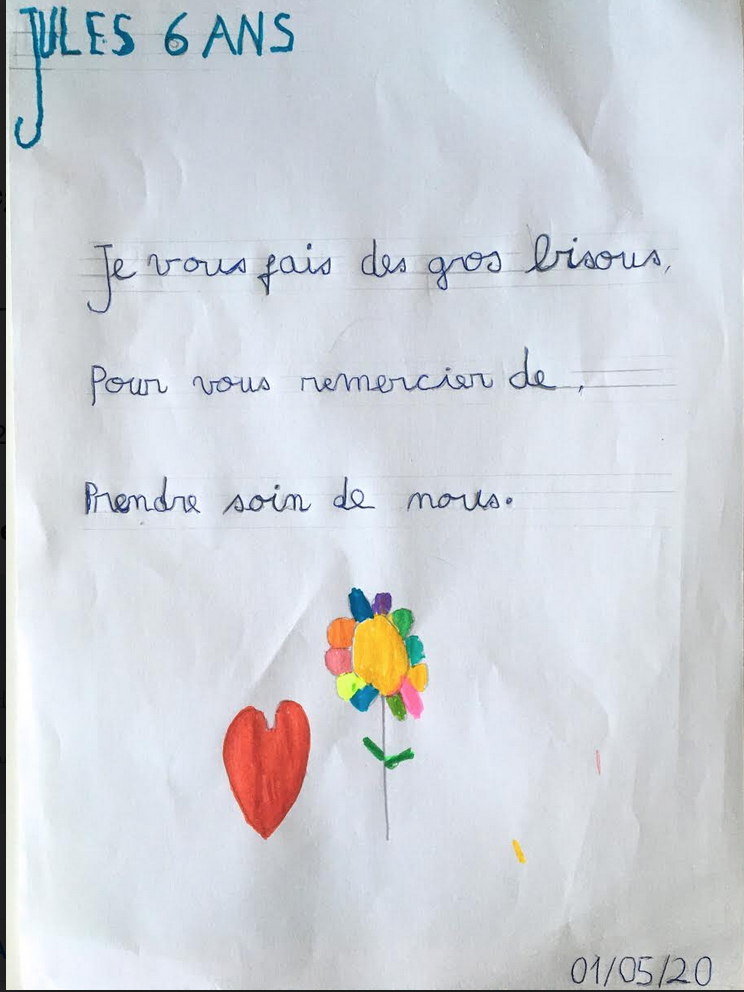 JULES 6 ANS
Je vous fais des gros bisous,
Pour vous remercier de ,
Prendre soin de nous.
01/05/20